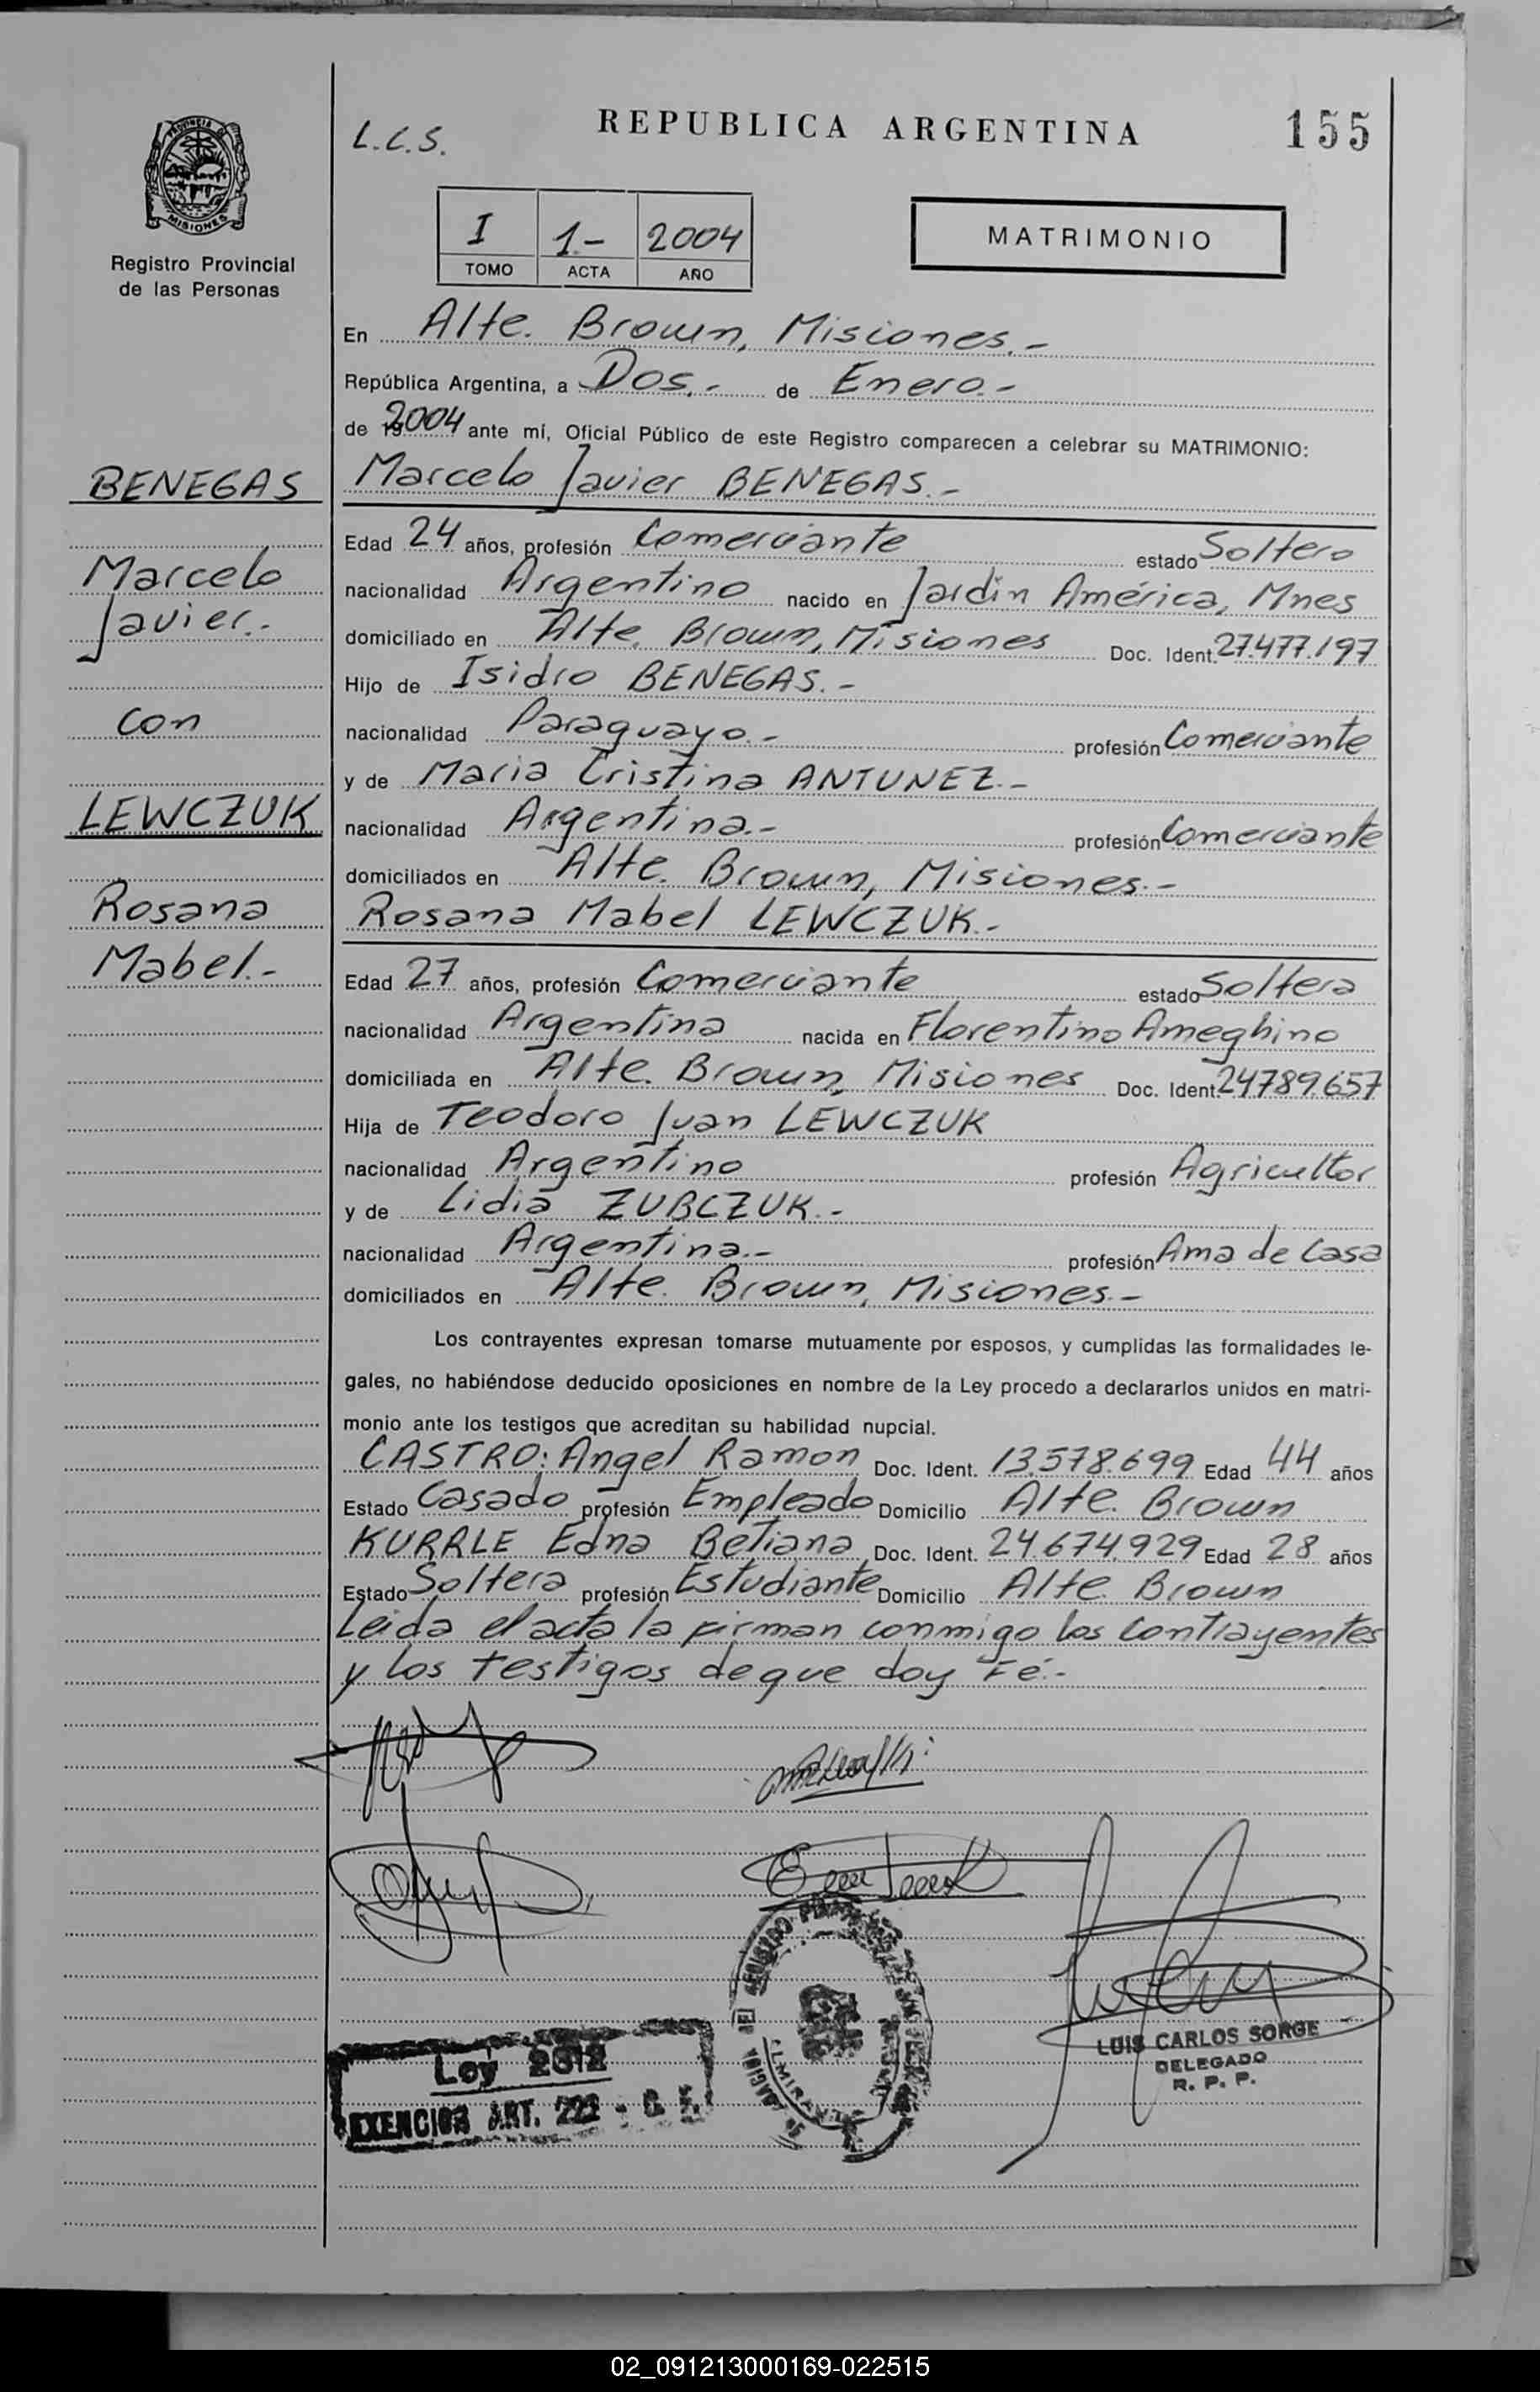 L.C.S.
REPUBLICA ARGENTINA
155
PROVINCIA DE
MISIONES
Registro Provincial
de las Personas
I 1- 2004
TOMO ACTA AÑO
MATRIMONIO
En Alte. Brown, Misiones.-
República Argentina, a Dos.- de Enero.-
de 2004 ante mí, Oficial Público de este Registro comparecen a celebrar su MATRIMONIO:
BENEGAS
Marcelo
Javier.-
con
LEWCZUK
Rosana
Mabel.-
Marcelo Javier BENEGAS.-
Edad 24 años, profesión Comerciante estado Soltero
nacionalidad Argentino nacido en Jardin América, Mnes
domiciliado en Alte. Brown, Misiones Doc. Ident. 27.477.197
Hijo de Isidro BENEGAS.-
nacionalidad Paraguayo.- profesión Comerciante
y de Maria Cristina ANTUNEZ.-
nacionalidad Argentina.- profesión Comerciante
domiciliados en Alte. Brown, Misiones.-
Rosana Mabel LEWCZUK.-
Edad 27 años, profesión Comerciante estado Soltera
nacionalidad Argentina nacida en Florentino Ameghino
domiciliada en Alte. Brown, Misiones Doc. Ident. 24789.657
Hija de Teodoro Juan LEWCZUK
nacionalidad Argentino profesión Agricultor
y de Lidia ZUBCZUK.-
nacionalidad Argentina.- profesión Ama de Casa
domiciliados en Alte. Brown, Misiones.-
Los contrayentes expresan tomarse mutuamente por esposos, y cumplidas las formalidades le-
gales, no habiéndose deducido oposiciones en nombre de la Ley procedo a declararlos unidos en matri-
monio ante los testigos que acreditan su habilidad nupcial.
CASTRO: Angel Ramon Doc. Ident. 13.578.699 Edad 44 años
Estado Casado profesión Empleado Domicilio Alte. Brown
KURRLE Edna Betiana Doc. Ident. 24.674.929 Edad 28 años
Estado Soltera profesión Estudiante Domicilio Alte. Brown
Leida el acta la firman conmigo los contrayentes
y los testigos de que doy Fé.-
LUIS CARLOS SORGE
DELEGADO
R. P. P.
Ley 2812
EXENCION ART. 222 - C. F.
02_091213000169-022515